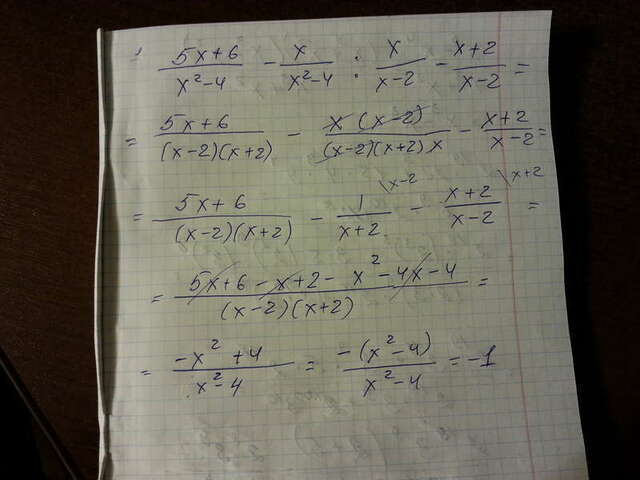 (5x+6)/(x²-4) - x/(x²-4) : x/(x-2) - (x+2)/(x-2) =
= (5x+6)/((x-2)(x+2)) - (x(x-2))/((x-2)(x+2)x) - (x+2)/(x-2) =
= (5x+6)/((x-2)(x+2)) - 1/(x+2) \x-2 - (x+2)/(x-2) \x+2 =
= (5x+6-x+2-x²-4x-4)/((x-2)(x+2)) =
= (-x²+4)/(x²-4) = (-(x²-4))/(x²-4) = -1